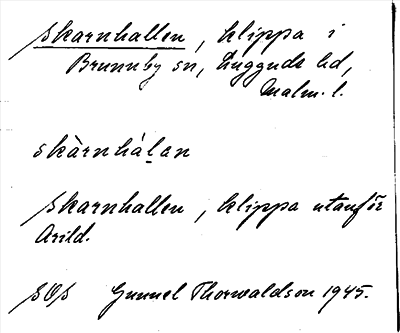 Skarnhallen, klippa i
Brunnby sn, Luggude hd,
Malm. l.
skàrnháḷan
Skarnhallen, klippa utanför
Arild.
SOS Gunnel Thorwaldson 1945.